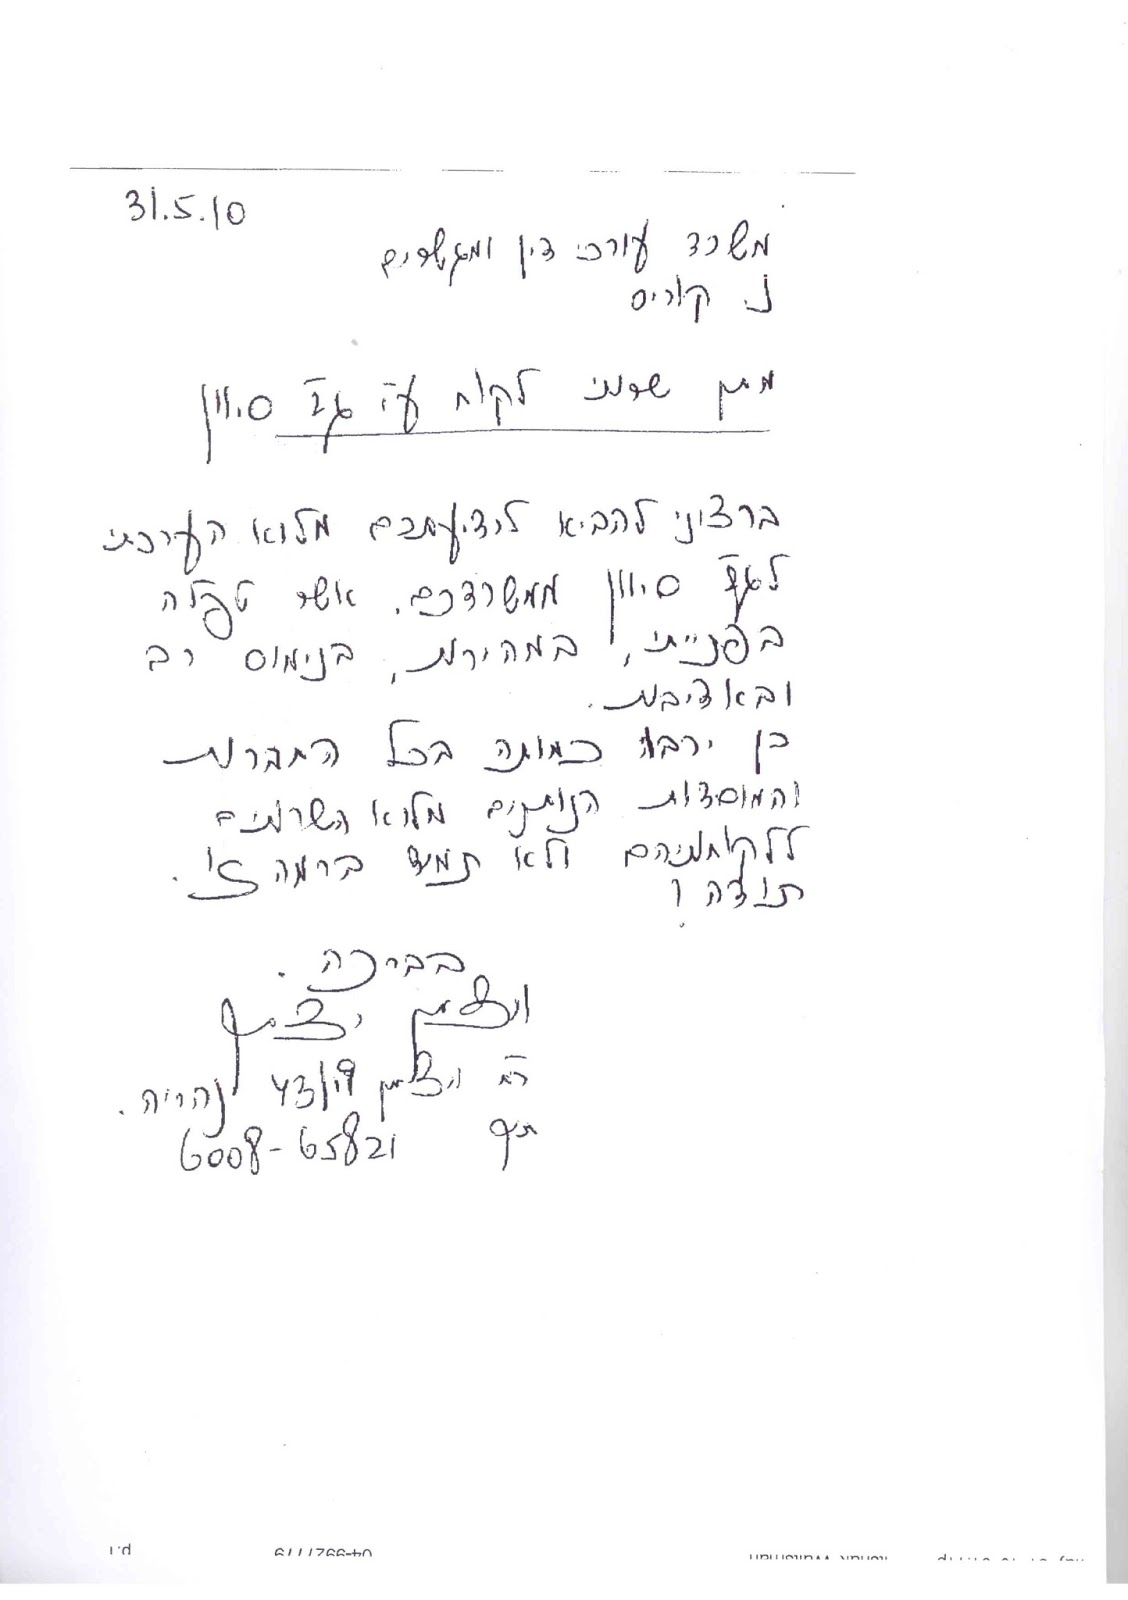 31.5.10
משרד עורכי דין ומגשרים
נ. קוריס
מתן שרותי לקוח ע"י גב' סיוון
ברצוני להביא לידיעתכם מלוא הערכתי
לגב' סיוון ממשרדכם, אשר טפלה
בפנייתי, במהירות, בנימוס רב
ובאדיבות.
כן ירבו כמותה בכל החברות
והמוסדות הנותנים מלוא השרותים
ללקוחותיהם ולא תמיד ברמה זו.
תודה!
בברכה.
ויצמן
רח' ויצמן 43/19 נהריה.
ת.ד. 6008-65821
04-9927779
p.1